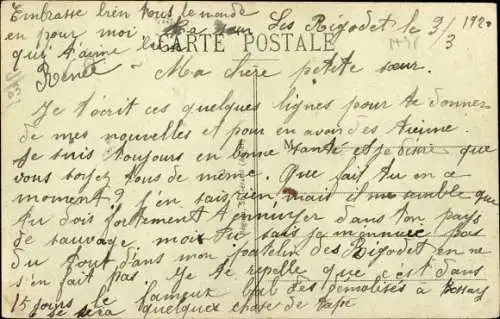 Embrasse bien tous le monde
en pour moi
qui t'aime
Renée
CARTE POSTALE
Les Rigodet le 3/3 192
Ma chère petite sœur.
Je t'écrit ces quelques lignes pour te donner
de mes nouvelles et pour en avoir des tienne
Je suis toujours en bonne santé et je désire que
vous soyez tous de même. Que fait tu en ce
moment? j'en sais rien, mais il me semble que
tu dois fortement t'ennuyer dans ton pays
de sauvage, moi tu sais je m'ennuie pas
du tout dans mon patelin des Rigodet en ne
s'en fait pas. Je te repelle que c'est dans
15 jours le fameux bal des démolisés à
se sera quelques chose de